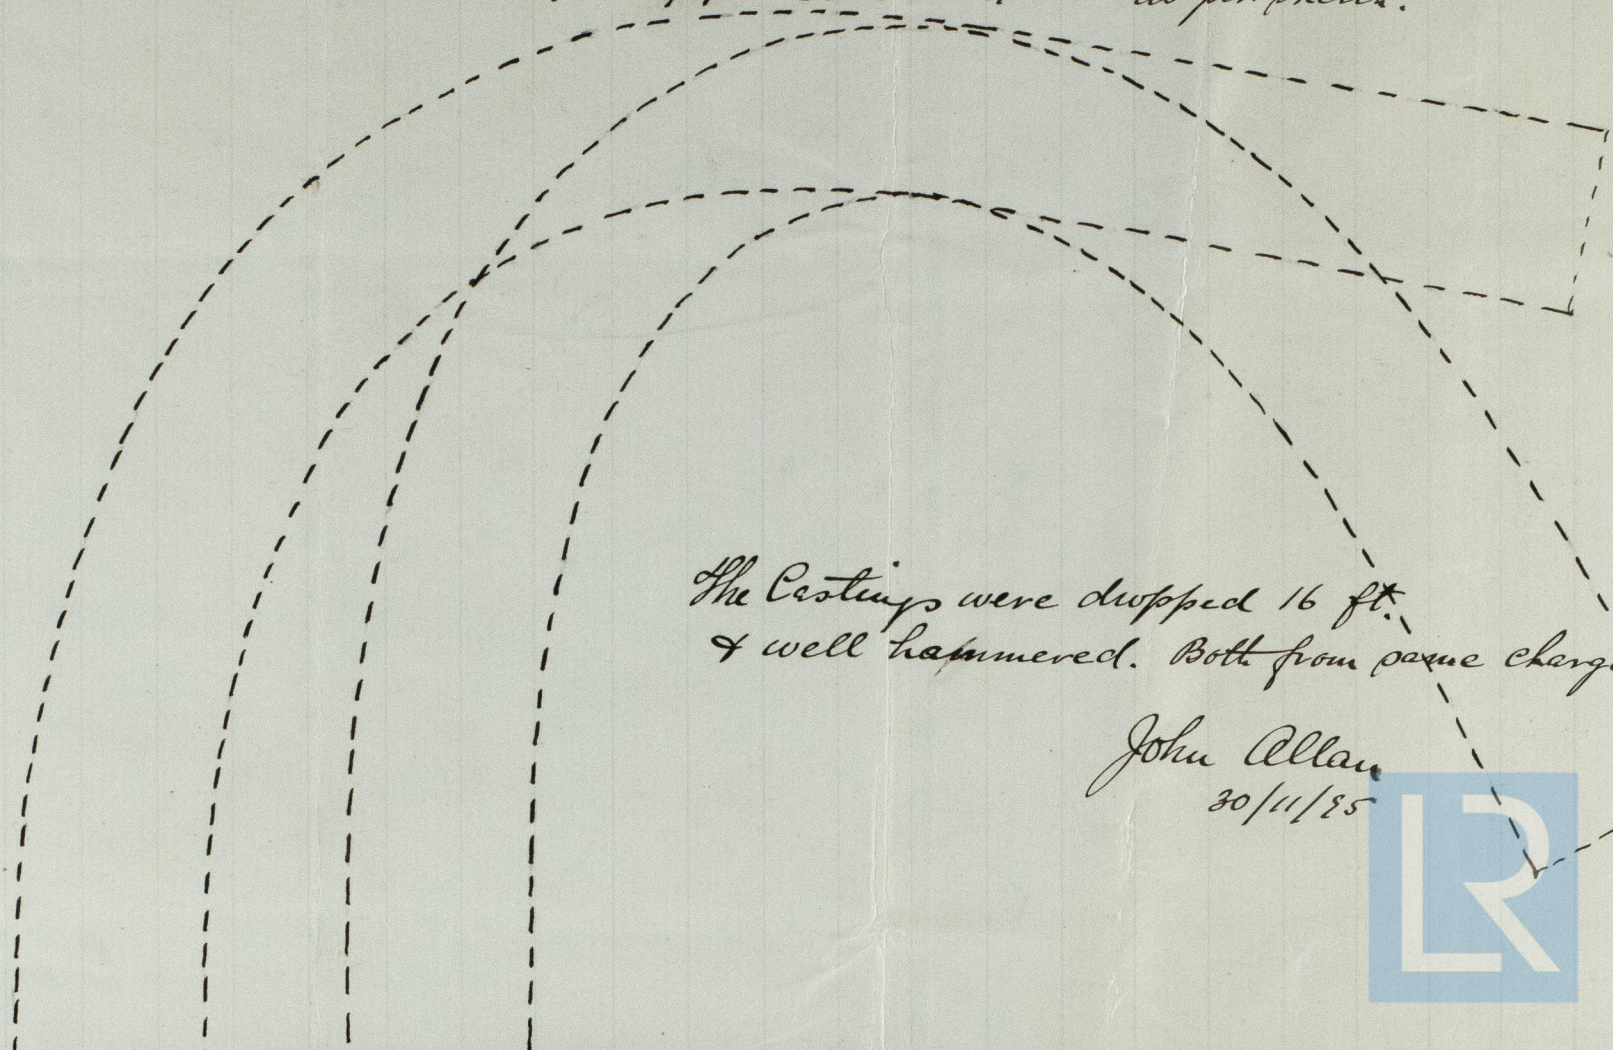 The Castings were dropped 16 ft.
& well hammered. Both from same charge
John Allan
30/11/95
LR